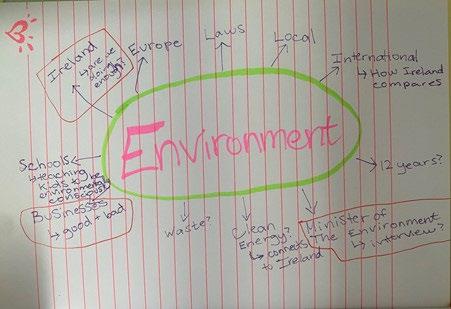 Ireland
↳ are we
doing
enough?
Europe
Laws
Local
International
↳ How Ireland
compares
Environment
12 years?
Schools
↳ teaching
kids to be
environmentally
conscious?
Businesses
↳ good + bad
Waste?
Clean
Energy?
↳ connects
to Ireland
Minister of
The Environment
↳ interview?